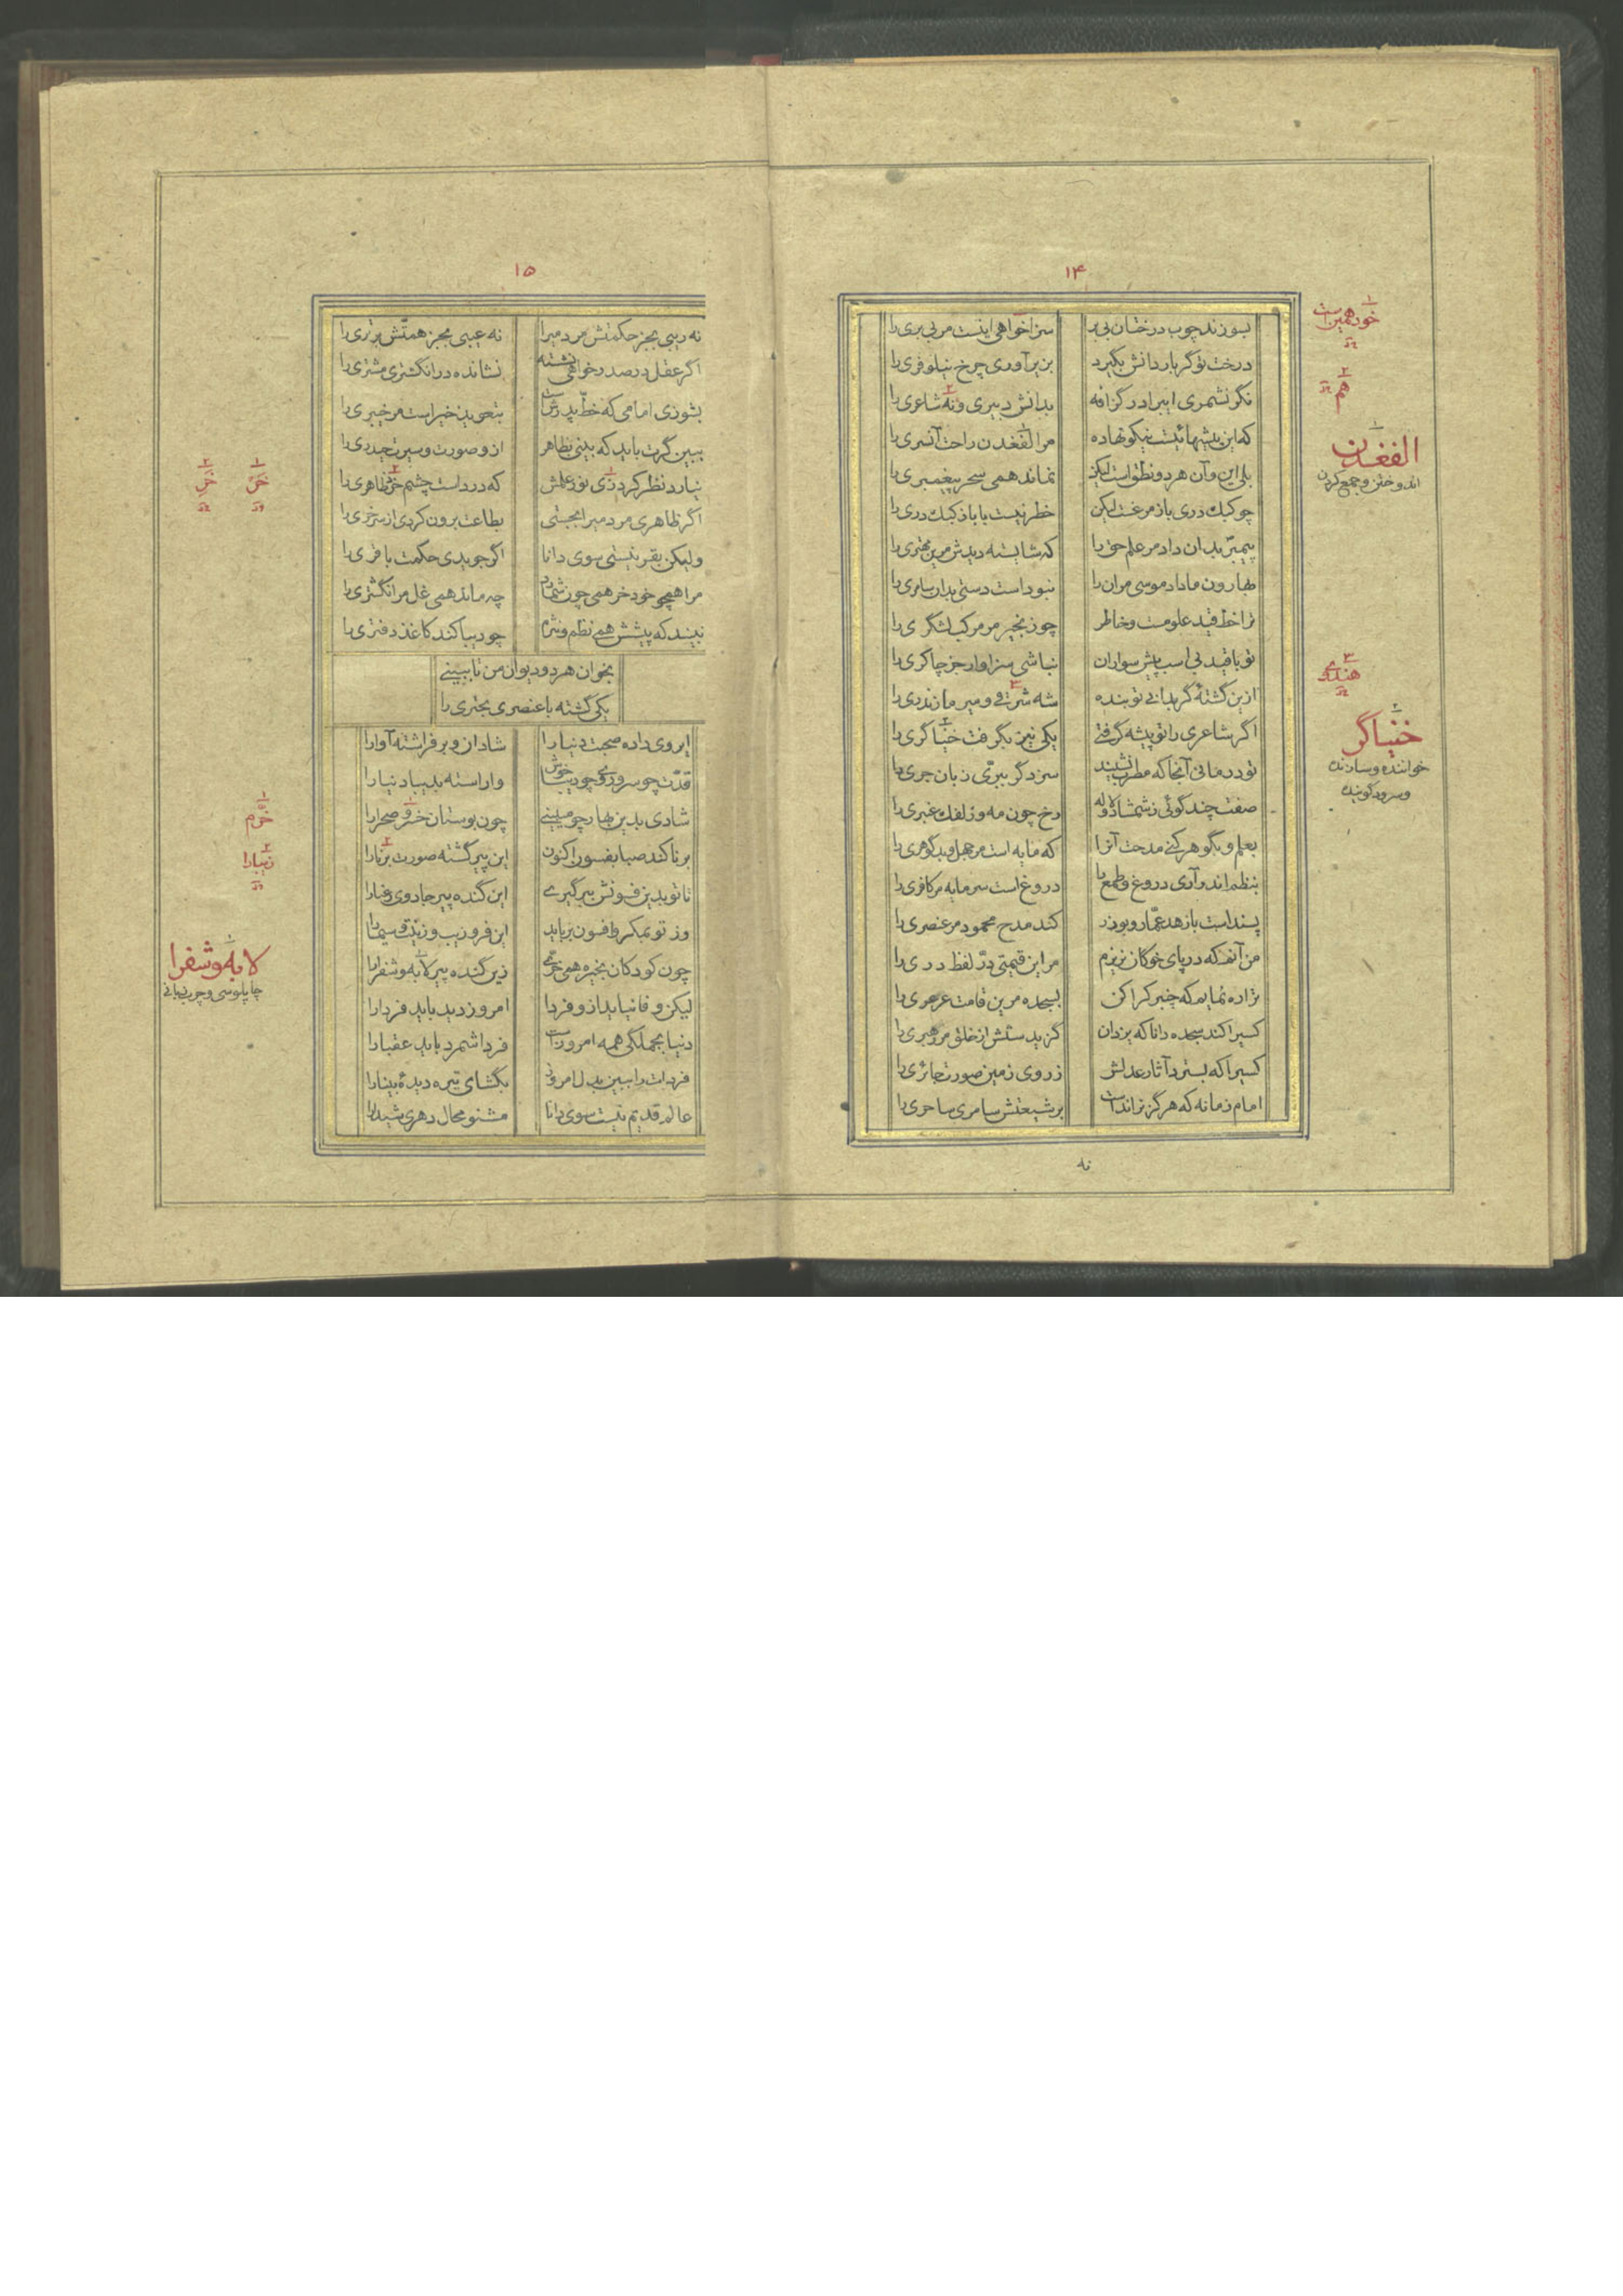 ۱۴
بسوزند چوب درختان بی بر سزا خواهی اینست مر بی بری را
درخت تو گر بار دانش بگیرد بزیر آوری چرخ نیلوفری را
نگر نشمری ای برادر گزافه بدانش دبیری و نه شاعری را
که این پیشهائیست نیکو نهاده مر الفغدن راحت آنسری را
بلی این و آن هر دو نطق است لیکن نماند همی سحر پیغمبری را
چو کبک دری باز مرغست لیکن خطر نیست با باز کبک دری را
پیمبر بدان داد مر علم حق را که شایسته دیدش مرین مهتری را
بهارون ما داد موسی مر ان را نبود است دستی بدان سامری را
ترا خط قید علومست و خاطر چو زنجیر مر مرکب لشگری را
تو با قید بی اسب پیش سواران نباشی سزاوار جز چاکری را
ازین گشتهٔ گر بدانی تو بنده شه شرقی و میر مازندری را
اگر شاعری را تو پیشه گرفتی یکی نیز بگرفت خنیاگری را
تو درمانی آنجا که مطرب نشیند سزد گر ببرّی زبان جری را
صفت چند گوئی ز شمشاد و لاله رخ چون مه و زلفک عنبری را
بعلم و بگوهر کنی مدحت آنرا که مایه است مر جهل و بدگوهری را
بنظم اندر آری دروغ و طمع را دروغ است سرمایه مر کافری را
پسند است با زهد عمّار و بوذر کند مدح محمود مر عنصری را
من آنم که در پای خوکان نریزم مر این قیمتی درّ لفظ دری را
ترا ره نمایم که چنبر کرا کن بسجده مرین قامت عرعری را
کسیرا کند سجده دانا که یزدان گزیدستش از خلق مر رهبری را
کسیرا که بسترد آثار عدلش ز روی زمین صورت جائری را
امام زمانه که هرگز نراندست بر شیعتش سامری ساحری را
نه
خود همین است
هم
الفغدن
اندوختن و جمع کردن
هندی
خنیاگر
خواننده و سازنده
و سرود گوینده
۱۵
نه ریبی بجز حکمتش مردمیرا نه عیبی بجز همتّش برتری را
اگر عقل در صدر خواهی نشسته نشانده در انگشتری مشتری را
بشو زی امامی که خطّ پدرش است بتعویذ خیر است مر خیبری را
ببین گرت باید که بینی بظاهر ازو صورت و سیرت حیدری را
نیارد نظر کرد زی نور علمش که در دست چشم خرد ظاهری را
اگر ظاهری مردمیرا بجستی بطاعت برون کردی از سر خری را
ولیکن بقر نیستی سوی دانا اگر جویدی حکمت باقری را
مرا همچو خود خر همی چون شمارد چه ماند همی غل مر انگشتری را
نبیند که پیشش همی نظم و نثرم چو دیبا کند کاغذ دفتری را
بخوان هر دو دیوان من تا ببینی
یکی گشته با عنصری بحتری را
ای روی داده صحبت دنیا را شادان و برفراشته آوا را
قدّت چو سرو و روی چو دیبا خوش واراسته بدیبا دنیا را
شادی بدین بهار چو میبینی چون بوستان خسرو صحرا را
برنا کند صبا بفسون اکنون این پیر گشته صورت برنا را
تا تو بدین فسونش ببر گیری این گنده پیر جادوی رعنا را
وز تو بمکر و افسون برباید این فرّ و زیب و زینت و سیما را
چون کودکان بخیره همی خرّی زین گنده پیر لابه و شفرا را
لیکن وفا نیاید ازو فردا امروز دید باید فردا را
دنیا بجملگی همه امروز است فردا شمرد باید عقبا را
فردات را ببین بدل امروز بگشای تیره دیدهٔ بینا را
عالم قدیم نیست سوی دانا مشنو محال دهری شیدا را
خرّم
زیبا را
لابه و شفرا
چاپلوسی و چرب زبانی